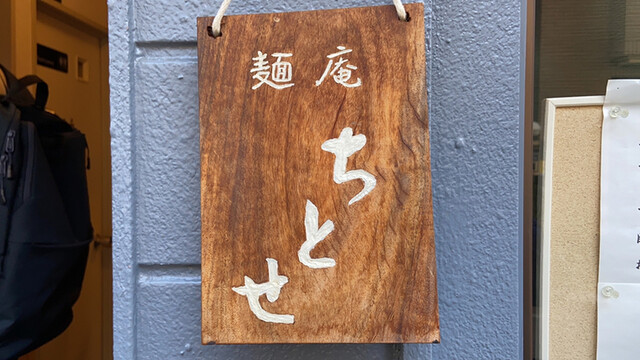 麺庵
ちとせ